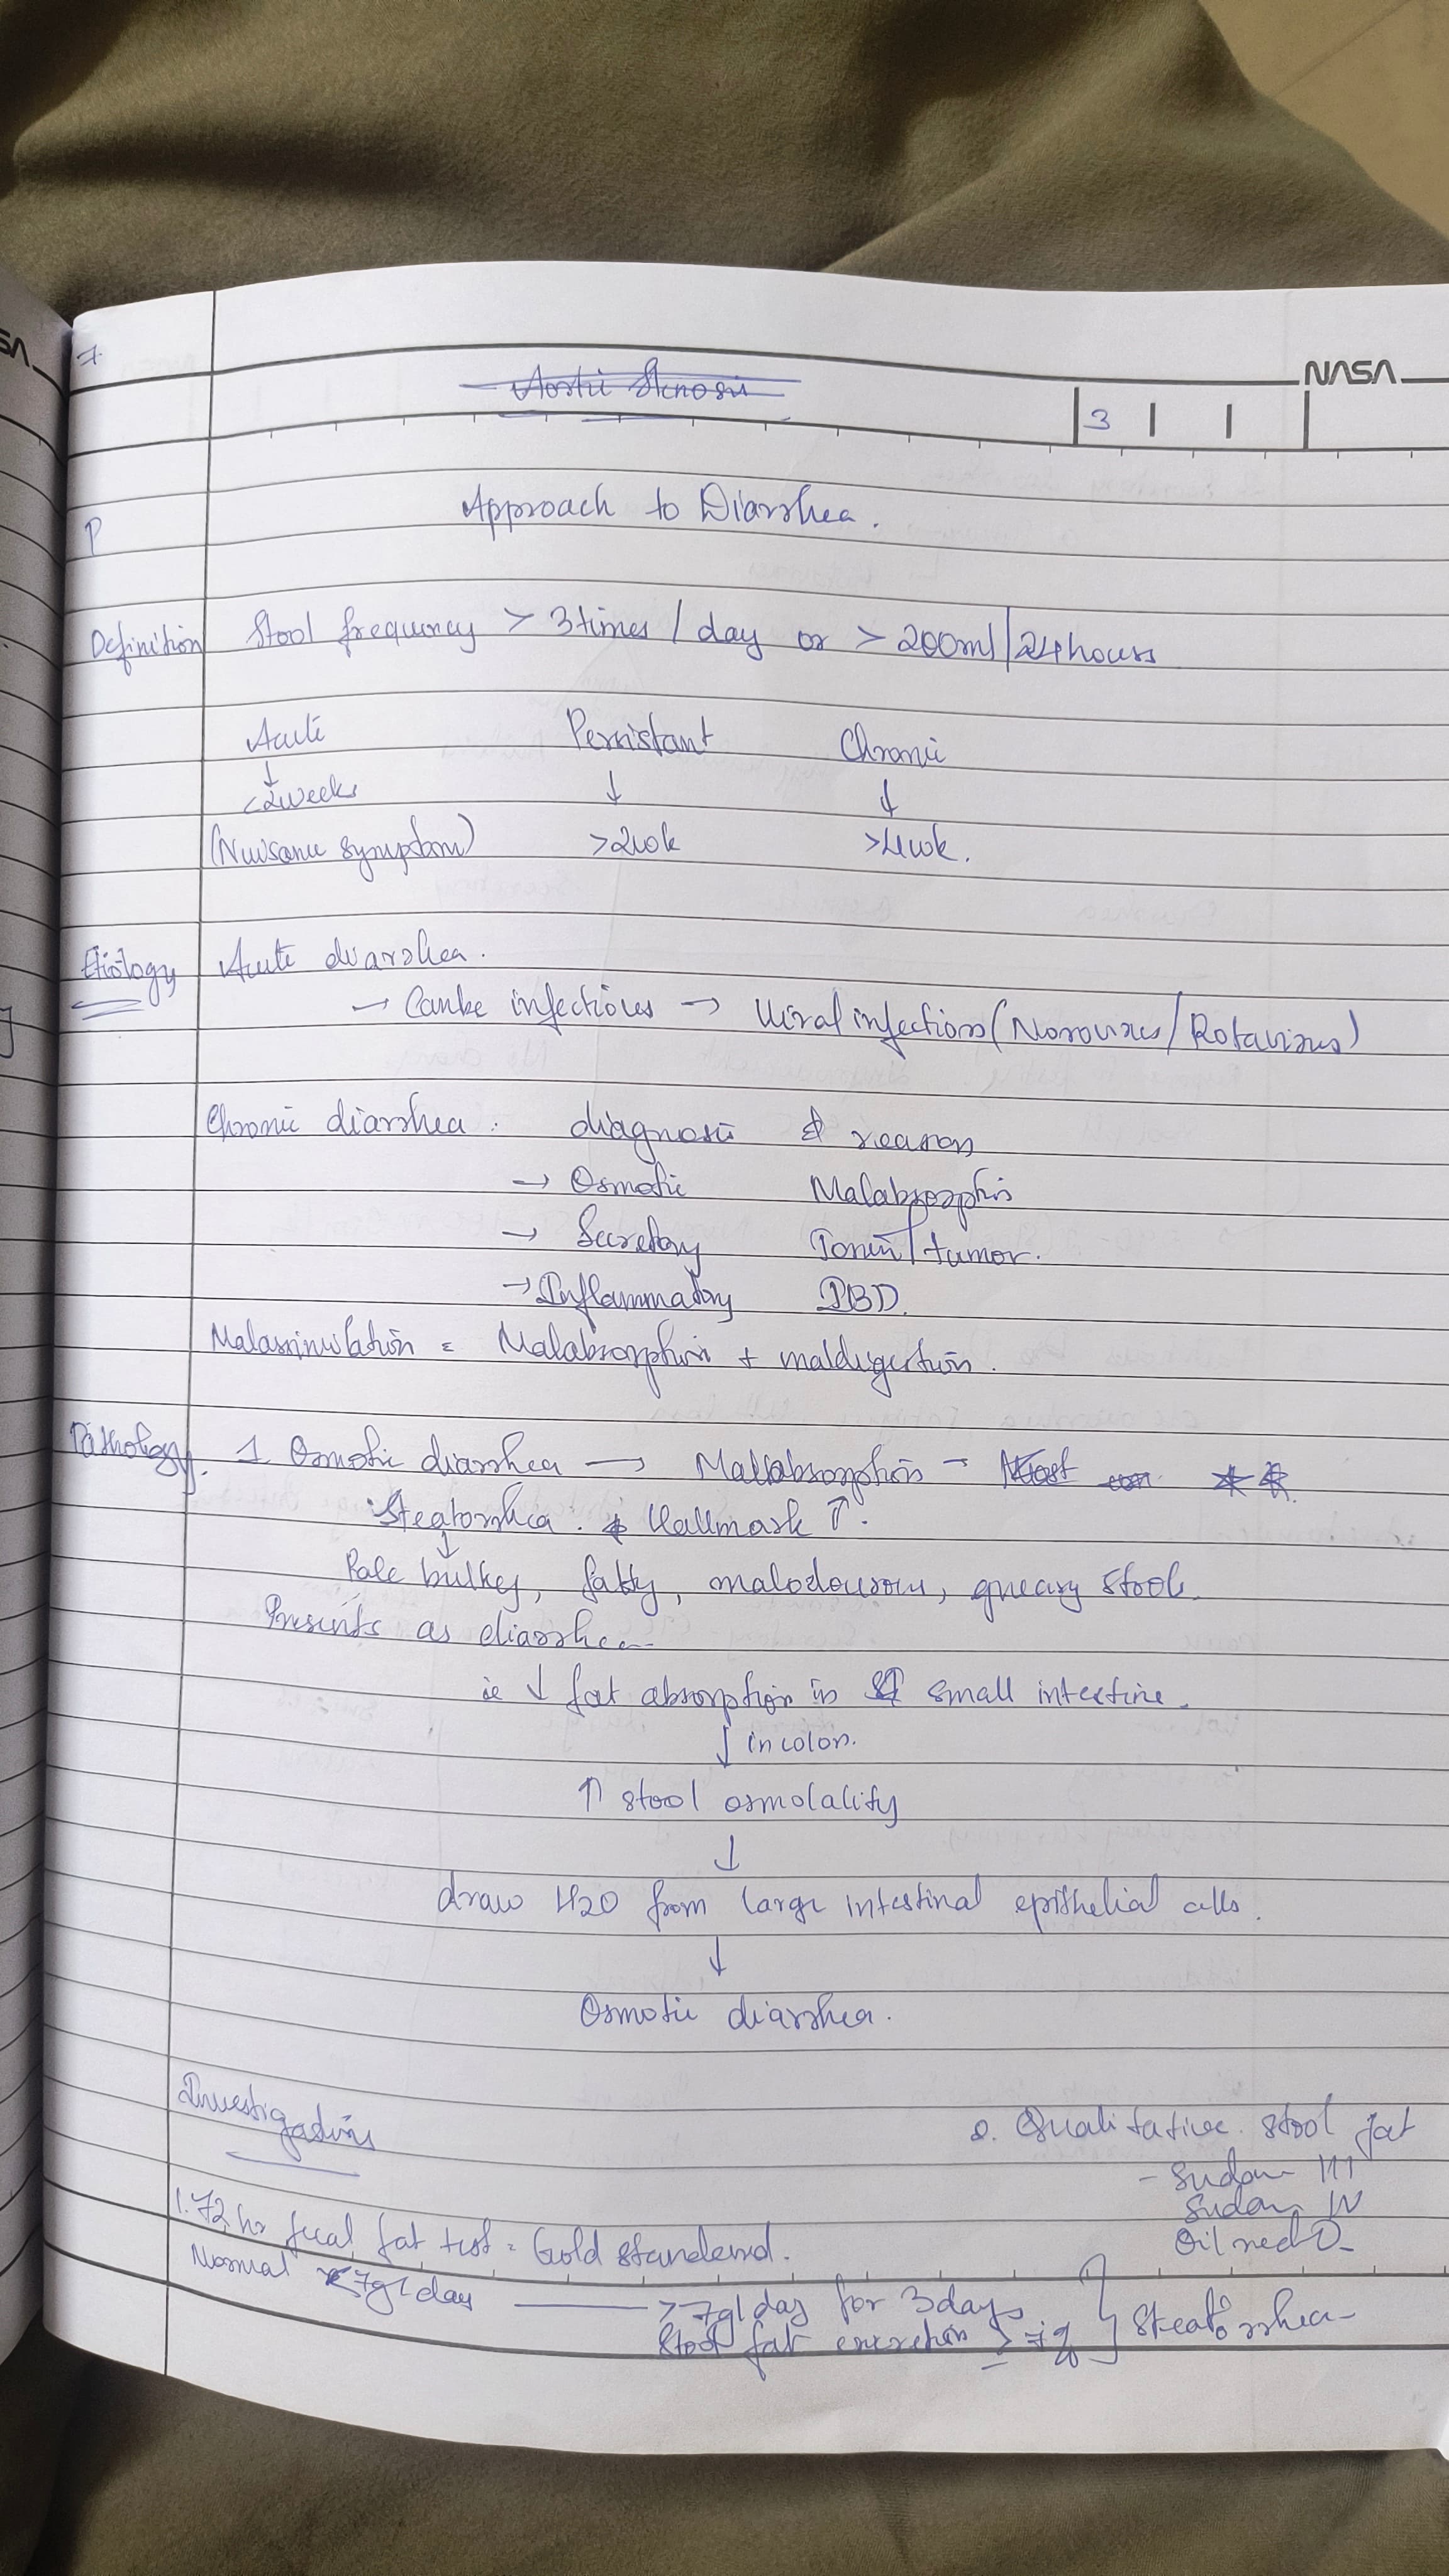 NASA
3
Aortic Stenosis
Approach to Diarrhea.
P
Definition Stool frequency > 3 times / day or > 200ml/24 hours
Acute Persistant Chronic
↓ ↓ ↓
<2weeks >2wk >4wk.
(Nuisance symptom)
Etiology Acute diarrhea.
→ Can be infectious → Viral infections (Norovirus/Rotavirus)
Chronic diarrhea : diagnosis & reason
→ Osmotic Malabsorption
→ Secretory Toxin/tumor.
→ Inflammatory IBD.
Malassimilation = Malabsorption + maldigestion.
Pathology. 1. Osmotic diarrhea → Mallabsorption -
Steatorrhea. * Hallmark ↑.
↓
Pale bulky, fatty, malodourous, greasy stool.
Presents as diarrhea
ie ↓ fat absorption in small intestine.
↓ in colon.
↑ stool osmolality
↓
draw H2O from large intestinal epithelial cells.
↓
Osmotic diarrhea.
Investigations
2. Qualitative stool fat
- Sudan III
Sudan IV
Oil red O
1. 72 hr fecal fat test = Gold standerd.
Normal <7g/day — >7g/day for 3 days
Stool fat excretion ≥ 7% } Steatorrhea